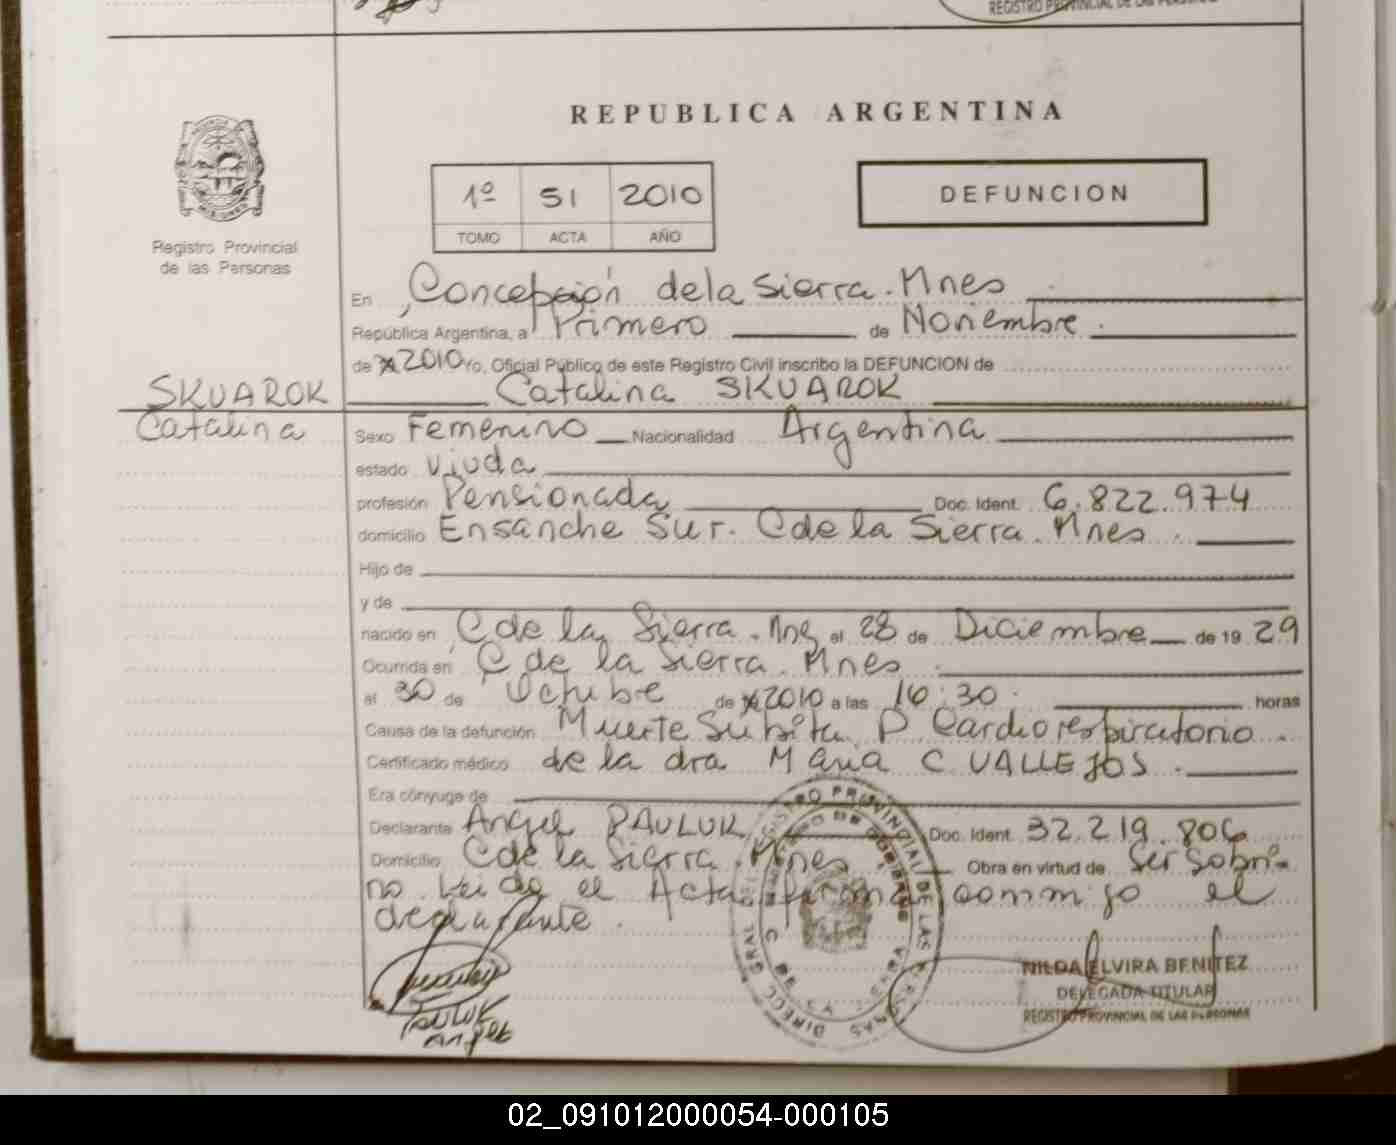 REGISTRO PROVINCIAL DE LAS PERSONAS
REPUBLICA ARGENTINA
1º 51 2010
TOMO ACTA AÑO
DEFUNCION
Registro Provincial
de las Personas
En Concepción de la Sierra. Mnes
República Argentina, a Primero de Noviembre
de 2010 yo, Oficial Público de este Registro Civil inscribo la DEFUNCION de
SKUAROK
Catalina
Catalina SKUAROK
Sexo Femenino Nacionalidad Argentina
estado Viuda
profesión Pensionada Doc. Ident. 6.822.974
domicilio Ensanche Sur. C de la Sierra. Mnes.
Hijo de
y de
nacido en C de la Sierra. Mns el 28 de Diciembre de 19 29
Ocurrida en C de la Sierra. Mnes
al 30 de Octubre de 2010 a las 16:30 horas
Causa de la defunción Muerte Subita P Cardiorespiratorio.
Certificado médico de la dra Maria C VALLEJOS.
Era cónyuge de
Declarante Angel PAULUK Doc. Ident. 32.219.806
Domicilio C de la Sierra. Mnes Obra en virtud de Ser Sobri-
no Leida el Acta firma conmigo el
declarante.
PAULUK
Angel
NILDA ELVIRA BENITEZ
DELEGADA TITULAR
REGISTRO PROVINCIAL DE LAS PERSONAS
02_091012000054-000105